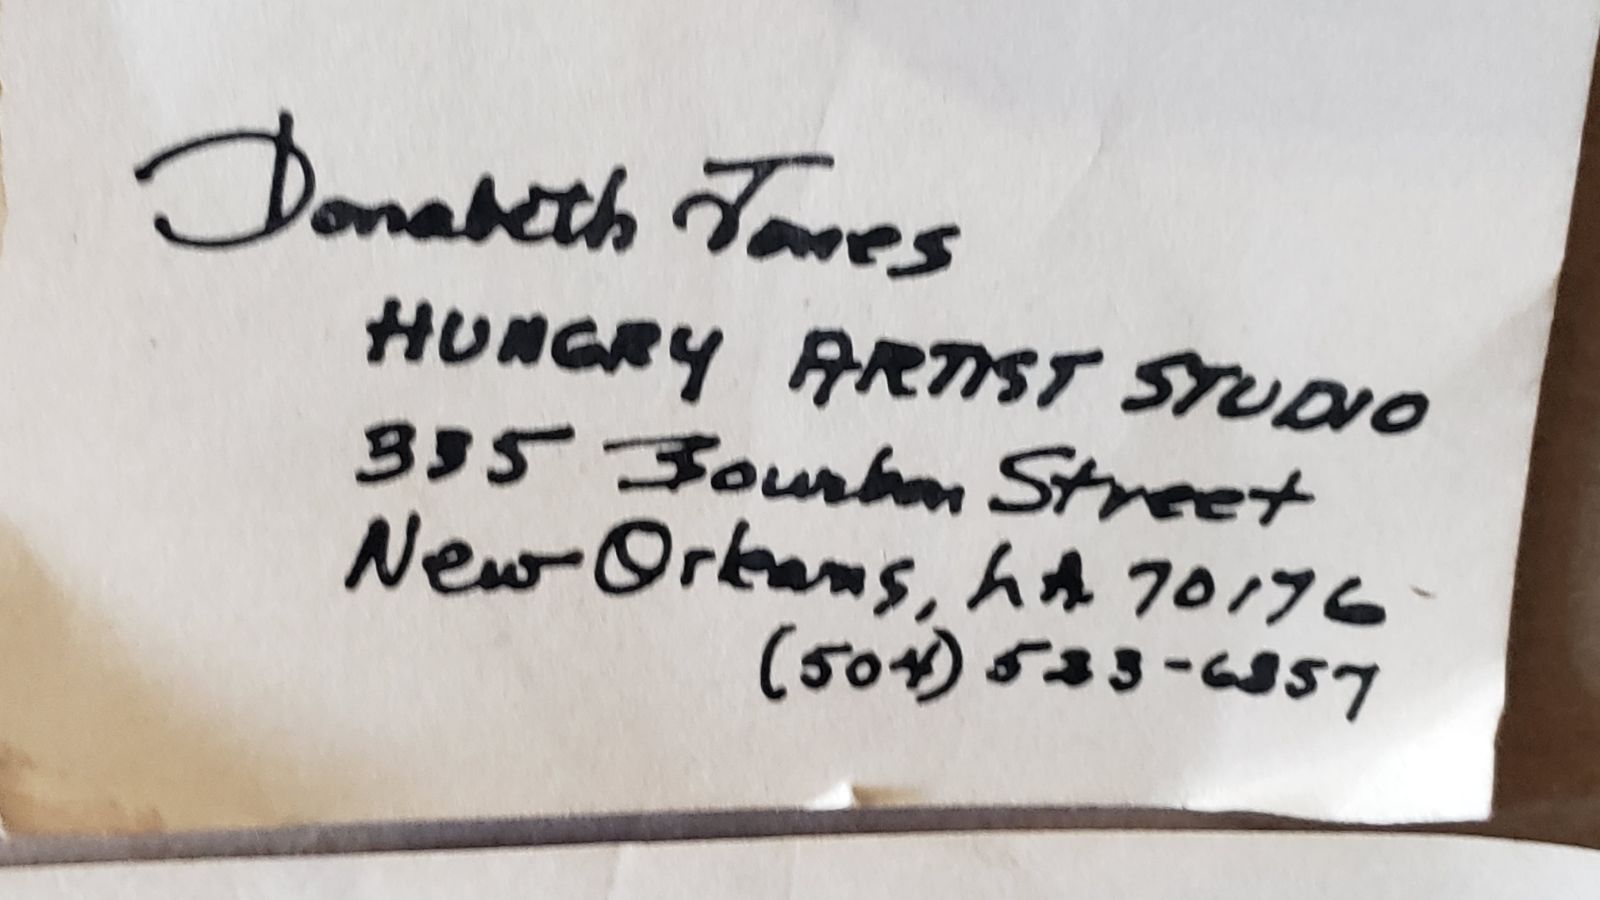 Donabeth Jones
HUNGRY ARTIST STUDIO
335 Bourbon Street
New Orleans, LA 70176
(504) 523-6857